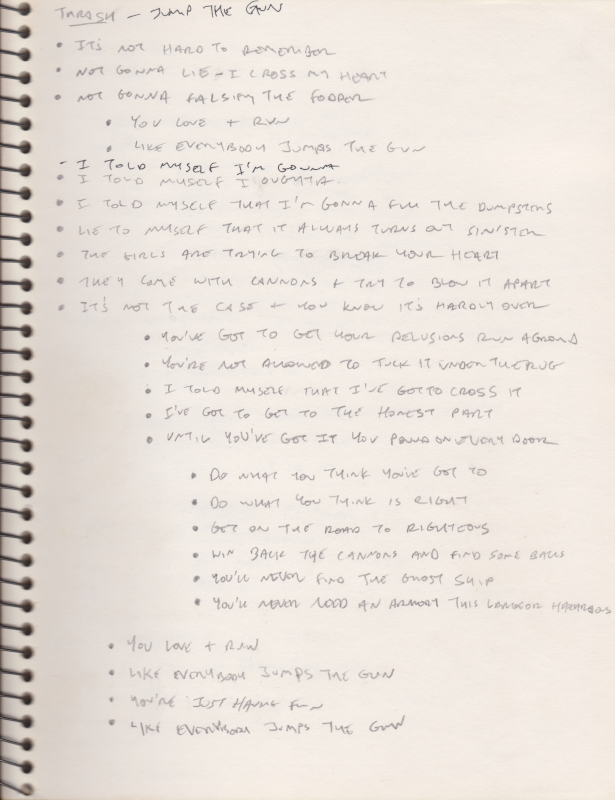 THRASH - JUMP THE GUN
• IT'S NOT HARD TO REMEMBER
• NOT GONNA LIE - I CROSS MY HEART
• NOT GONNA FALSIFY THE FODDER
• YOU LOVE + RUN
• LIKE EVERYBODY JUMPS THE GUN
- I TOLD MYSELF I'M GONNA
• I TOLD MYSELF I OUGHTTA
• I TOLD MYSELF THAT I'M GONNA FILL THE DUMPSTERS
• LIE TO MYSELF THAT IT ALWAYS TURNS OUT SINISTER
• THE GIRLS ARE TRYING TO BREAK YOUR HEART
• THEY COME WITH CANNONS + TRY TO BLOW IT APART
• IT'S NOT THE CASE + YOU KNOW IT'S HARDLY OVER
• YOU'VE GOT TO GET YOUR DELUSIONS RUN AGROUND
• YOU'RE NOT ALLOWED TO TUCK IT UNDER THE RUG
• I TOLD MYSELF THAT I'VE GOT TO CROSS IT
• I'VE GOT TO GET TO THE HONEST PART
• UNTIL YOU'VE GOT IT YOU POUND ON EVERY DOOR
• DO WHAT YOU THINK YOU'VE GOT TO
• DO WHAT YOU THINK IS RIGHT
• GET ON THE ROAD TO RIGHTEOUS
• WIN BACK THE CANNONS AND FIND SOME BALLS
• YOU'LL NEVER FIND THE GHOST SHIP
• YOU'LL NEVER LOAD AN ARMORY THIS
• YOU LOVE + RUN
• LIKE EVERYBODY JUMPS THE GUN
• YOU'RE JUST HAVING FUN
• LIKE EVERYBODY JUMPS THE GUN